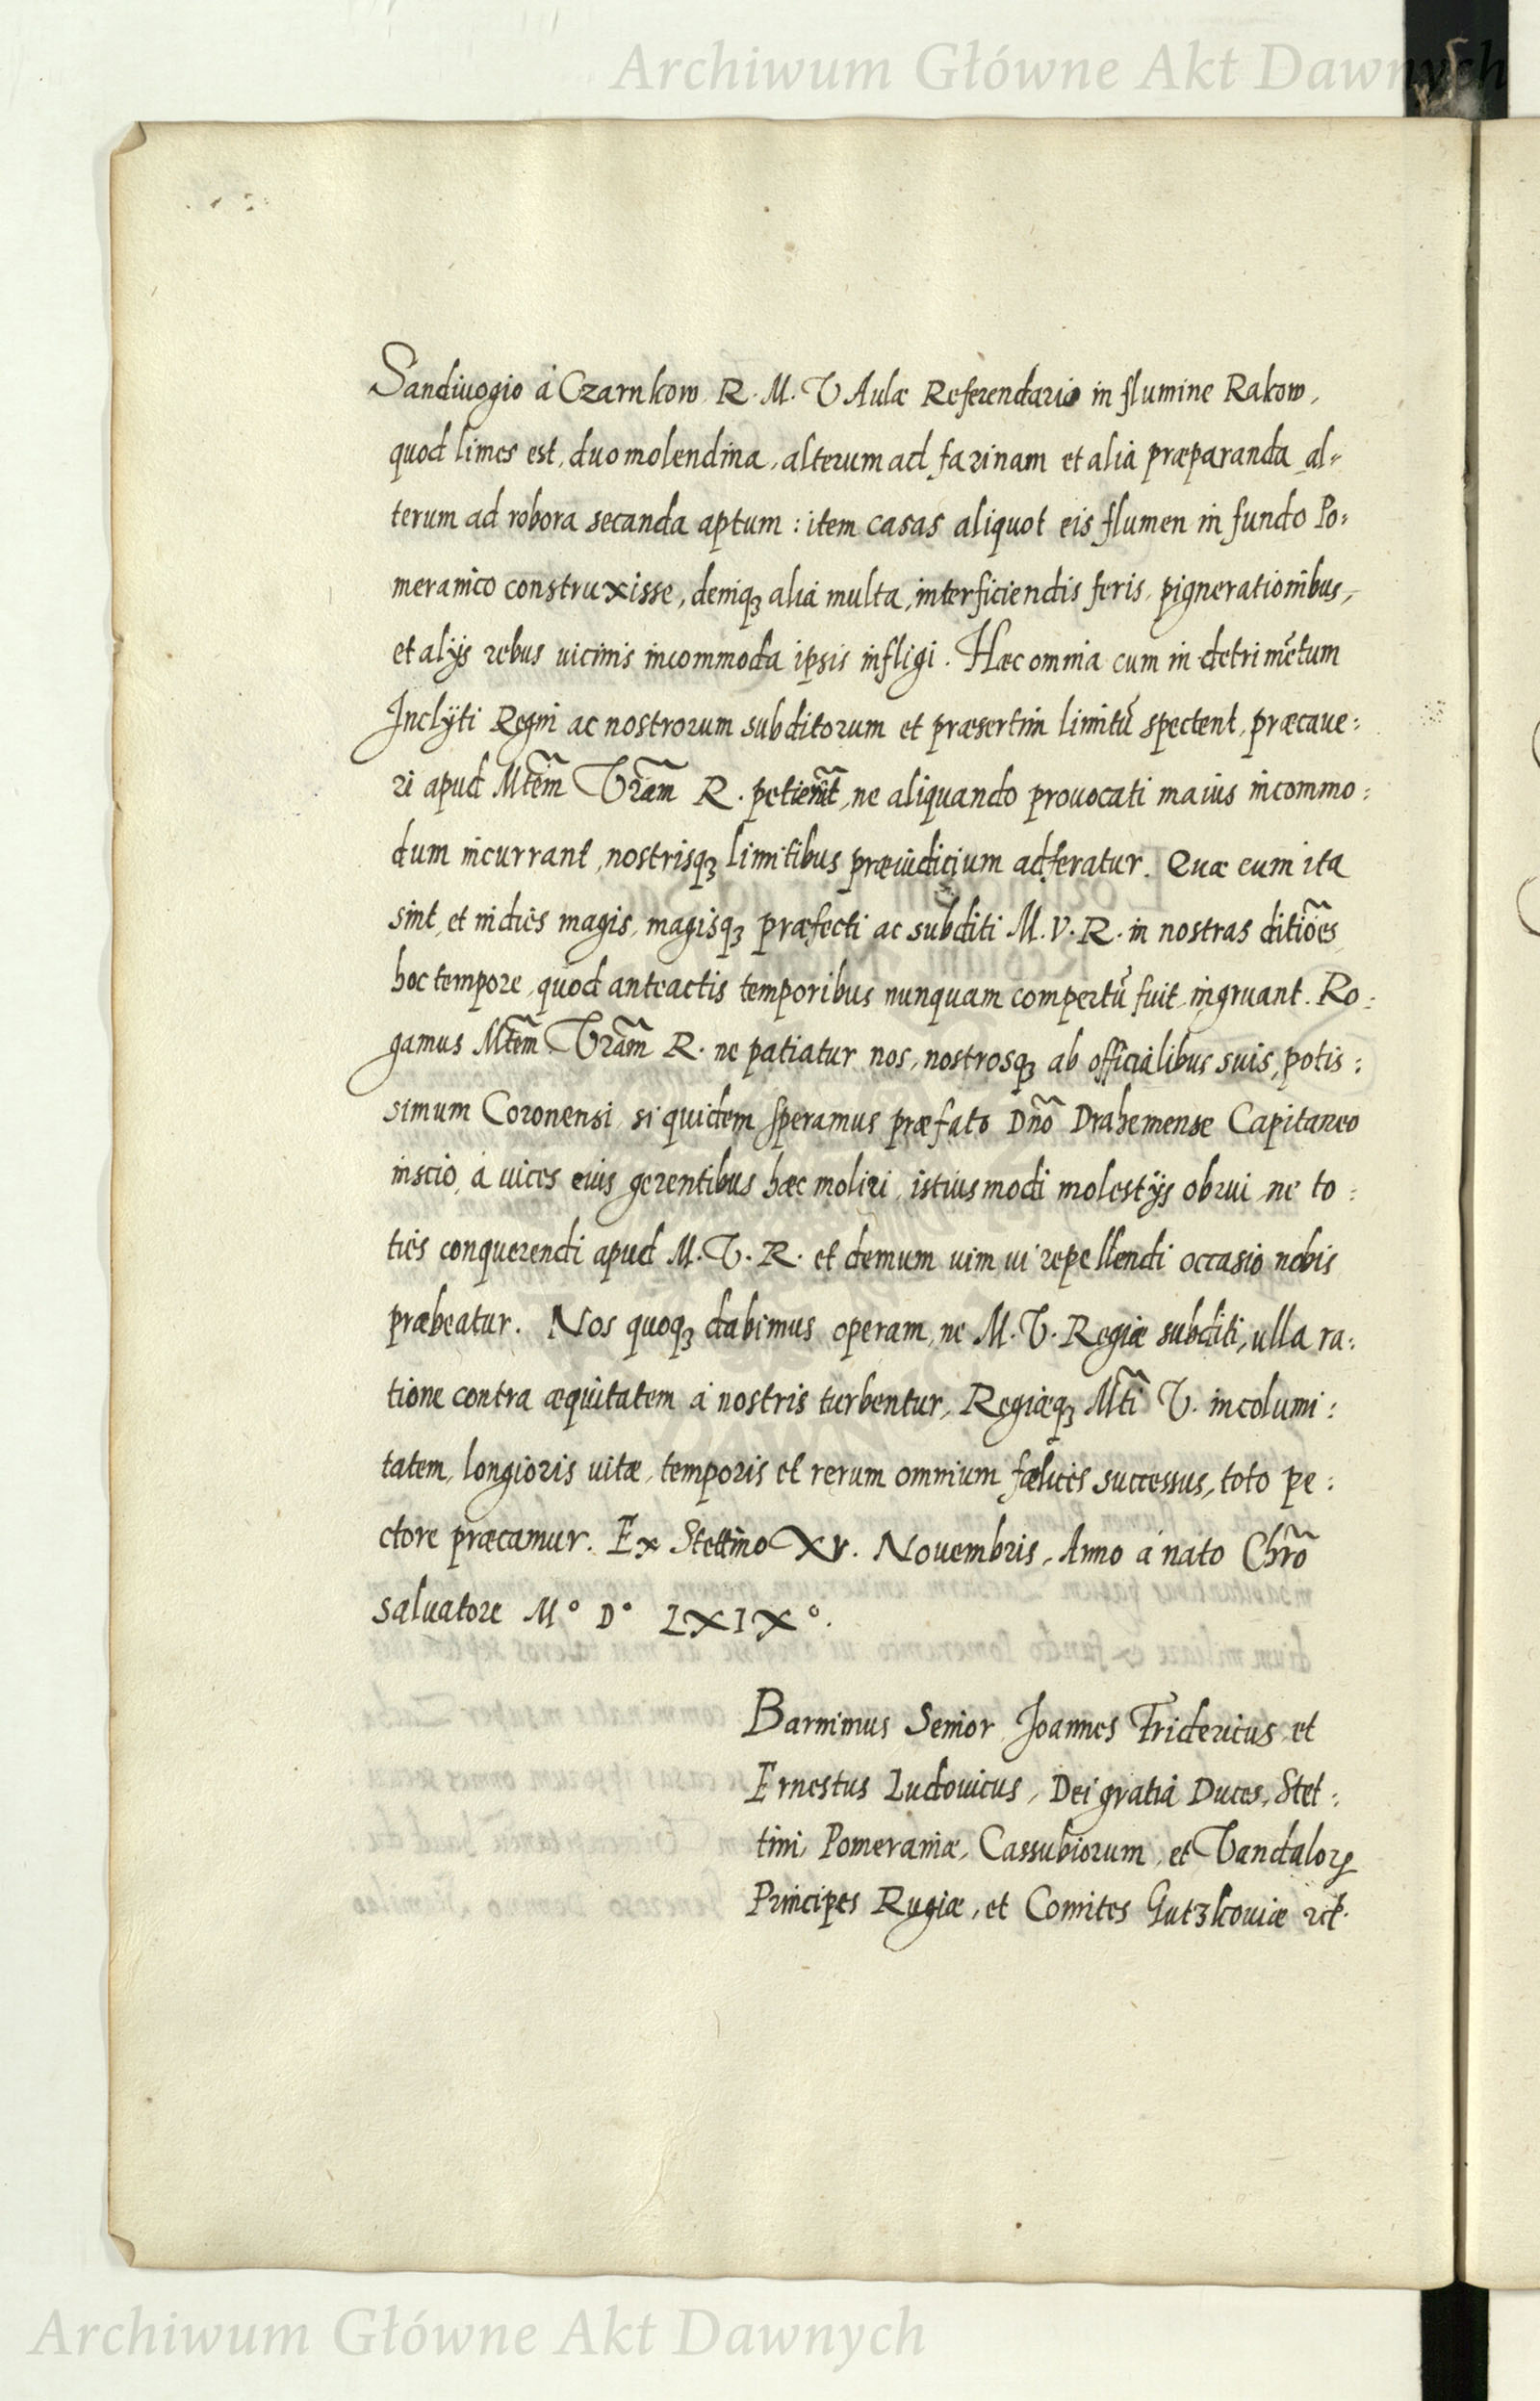 Archiwum Główne Akt Dawnych
Sandiuogio á Czarnkow R. M. V Aulæ Referendario in flumine Rakow,
quod limes est, duo molendina, alterum ad farinam et aliá præparanda al-
terum ad robora secanda aptum : item casas aliquot eis flumen in fundo Po-
meranico construxisse, deniqꝫ aliá multa, interficiendis feris, pignerationibus,
et alijs rebus uicinis incommoda ipsis infligi. Hæc omnia cum in detrimẽtum
Inclÿti Regni ac nostrorum subditorum et præsertim limitũ spectent, præcaue:
ri apud Mtẽm Vrãm R. petierũt, ne aliquando prouocati maius incommo:
dum incurrant, nostrisqꝫ limitibus præiudicium adferatur. Quæ cum ita
sint, et indiés magis, magisqꝫ præfecti ac subditi M. V. R. in nostras ditiões
hoc tempore, quod anteactis temporibus nunquam compertũ fuit, ingruant. Ro:
gamus Mtẽm Vrãm R. ne patiatur nos, nostrosqꝫ ab officialibus suis, potis:
simum Coronensi, si quidem speramus præfato Dño Drahemense Capitaneo
inscio, á uices eius gerentibus hæc moliri, istiusmodi molestijs obrui, ne to:
tiés conquerendi apud M. V. R. et demum uim ui repellendi occasio nobis
præbeatur. Nos quoqꝫ dabimus operam, ne M. V. Regiæ subditi, ulla ra:
tione contra æquitatem á nostris turbentur, Regiæqꝫ Mti͂ V. incolumi:
tatem, longioris uitæ, temporis et rerum omnium fœlices successus, toto pe:
ctore præcamur. Ex Stettino XV. Nouembris, Anno á nato Chrõ
saluatore M° D° LXIX°.
Barnimus Senior Joannes Fridericus et
Ernestus Ludouicus, Dei gratiá Duces, Stet:
tini, Pomeraniæ, Cassubiorum, et Vandaloꝝ
Principes Rugiæ, et Comites Gutzkouiæ ꝛc̃.
Archiwum Główne Akt Dawnych